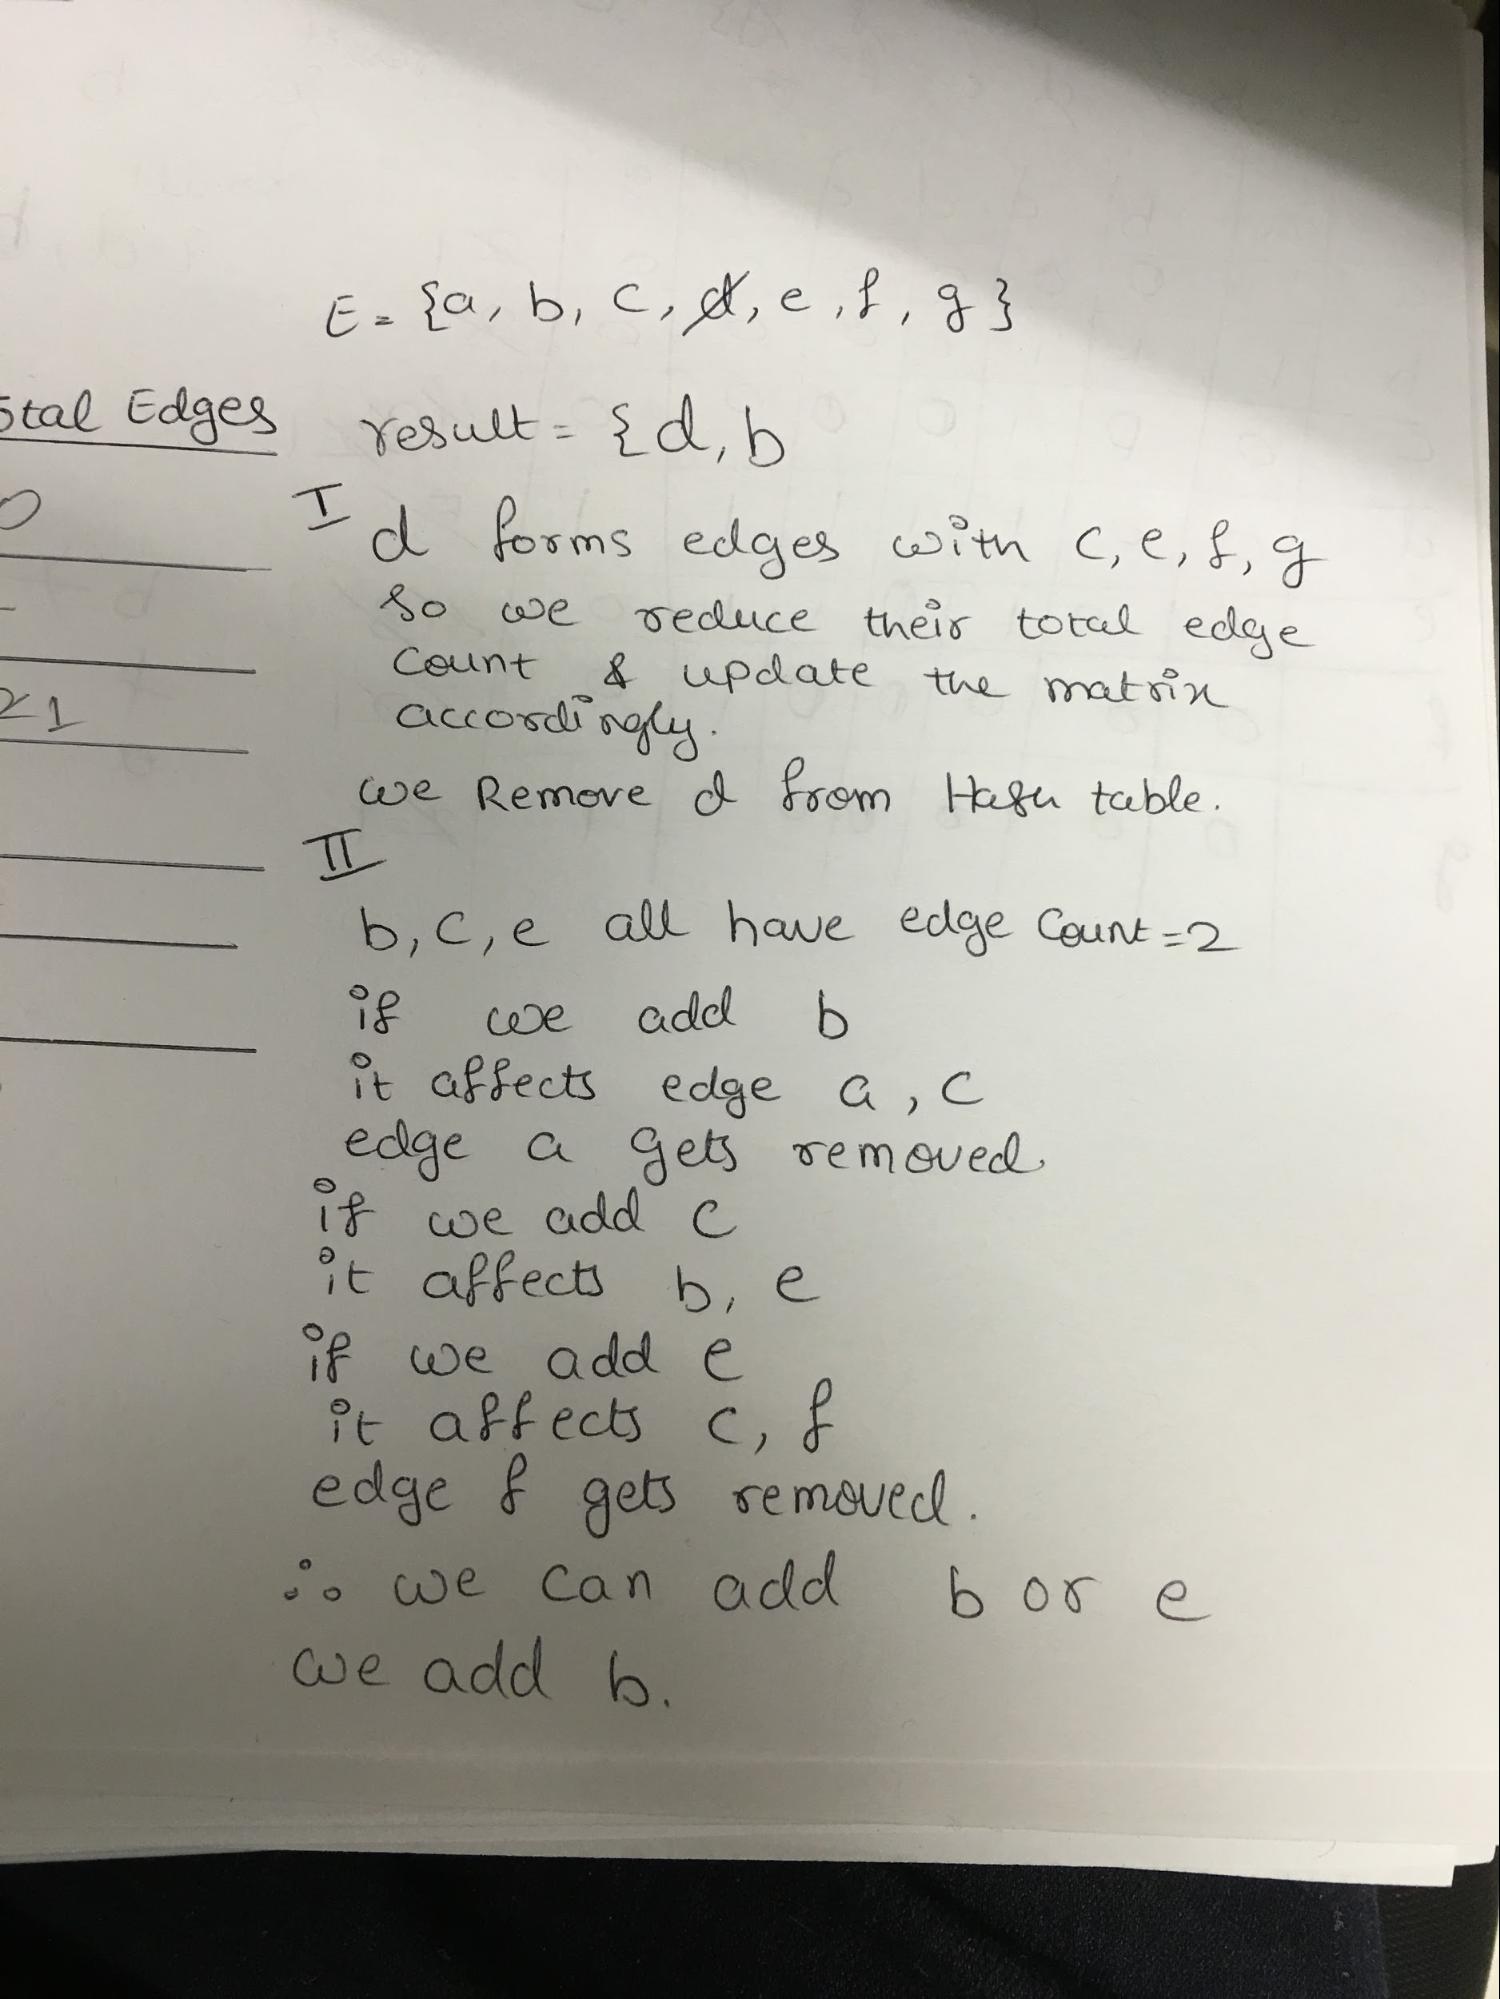 E = {a, b, c, d, e, f, g}
Edges
result = {d, b
0
I
d forms edges with c, e, f, g
So we reduce their total edge
count & update the matrix
accordingly.
21
we Remove d from Hash table.
II
b, c, e all have edge Count = 2
if we add b
it affects edge a, c
edge a gets removed.
if we add c
it affects b, e
if we add e
it affects c, f
edge f gets removed.
∴ we can add b or e
we add b.